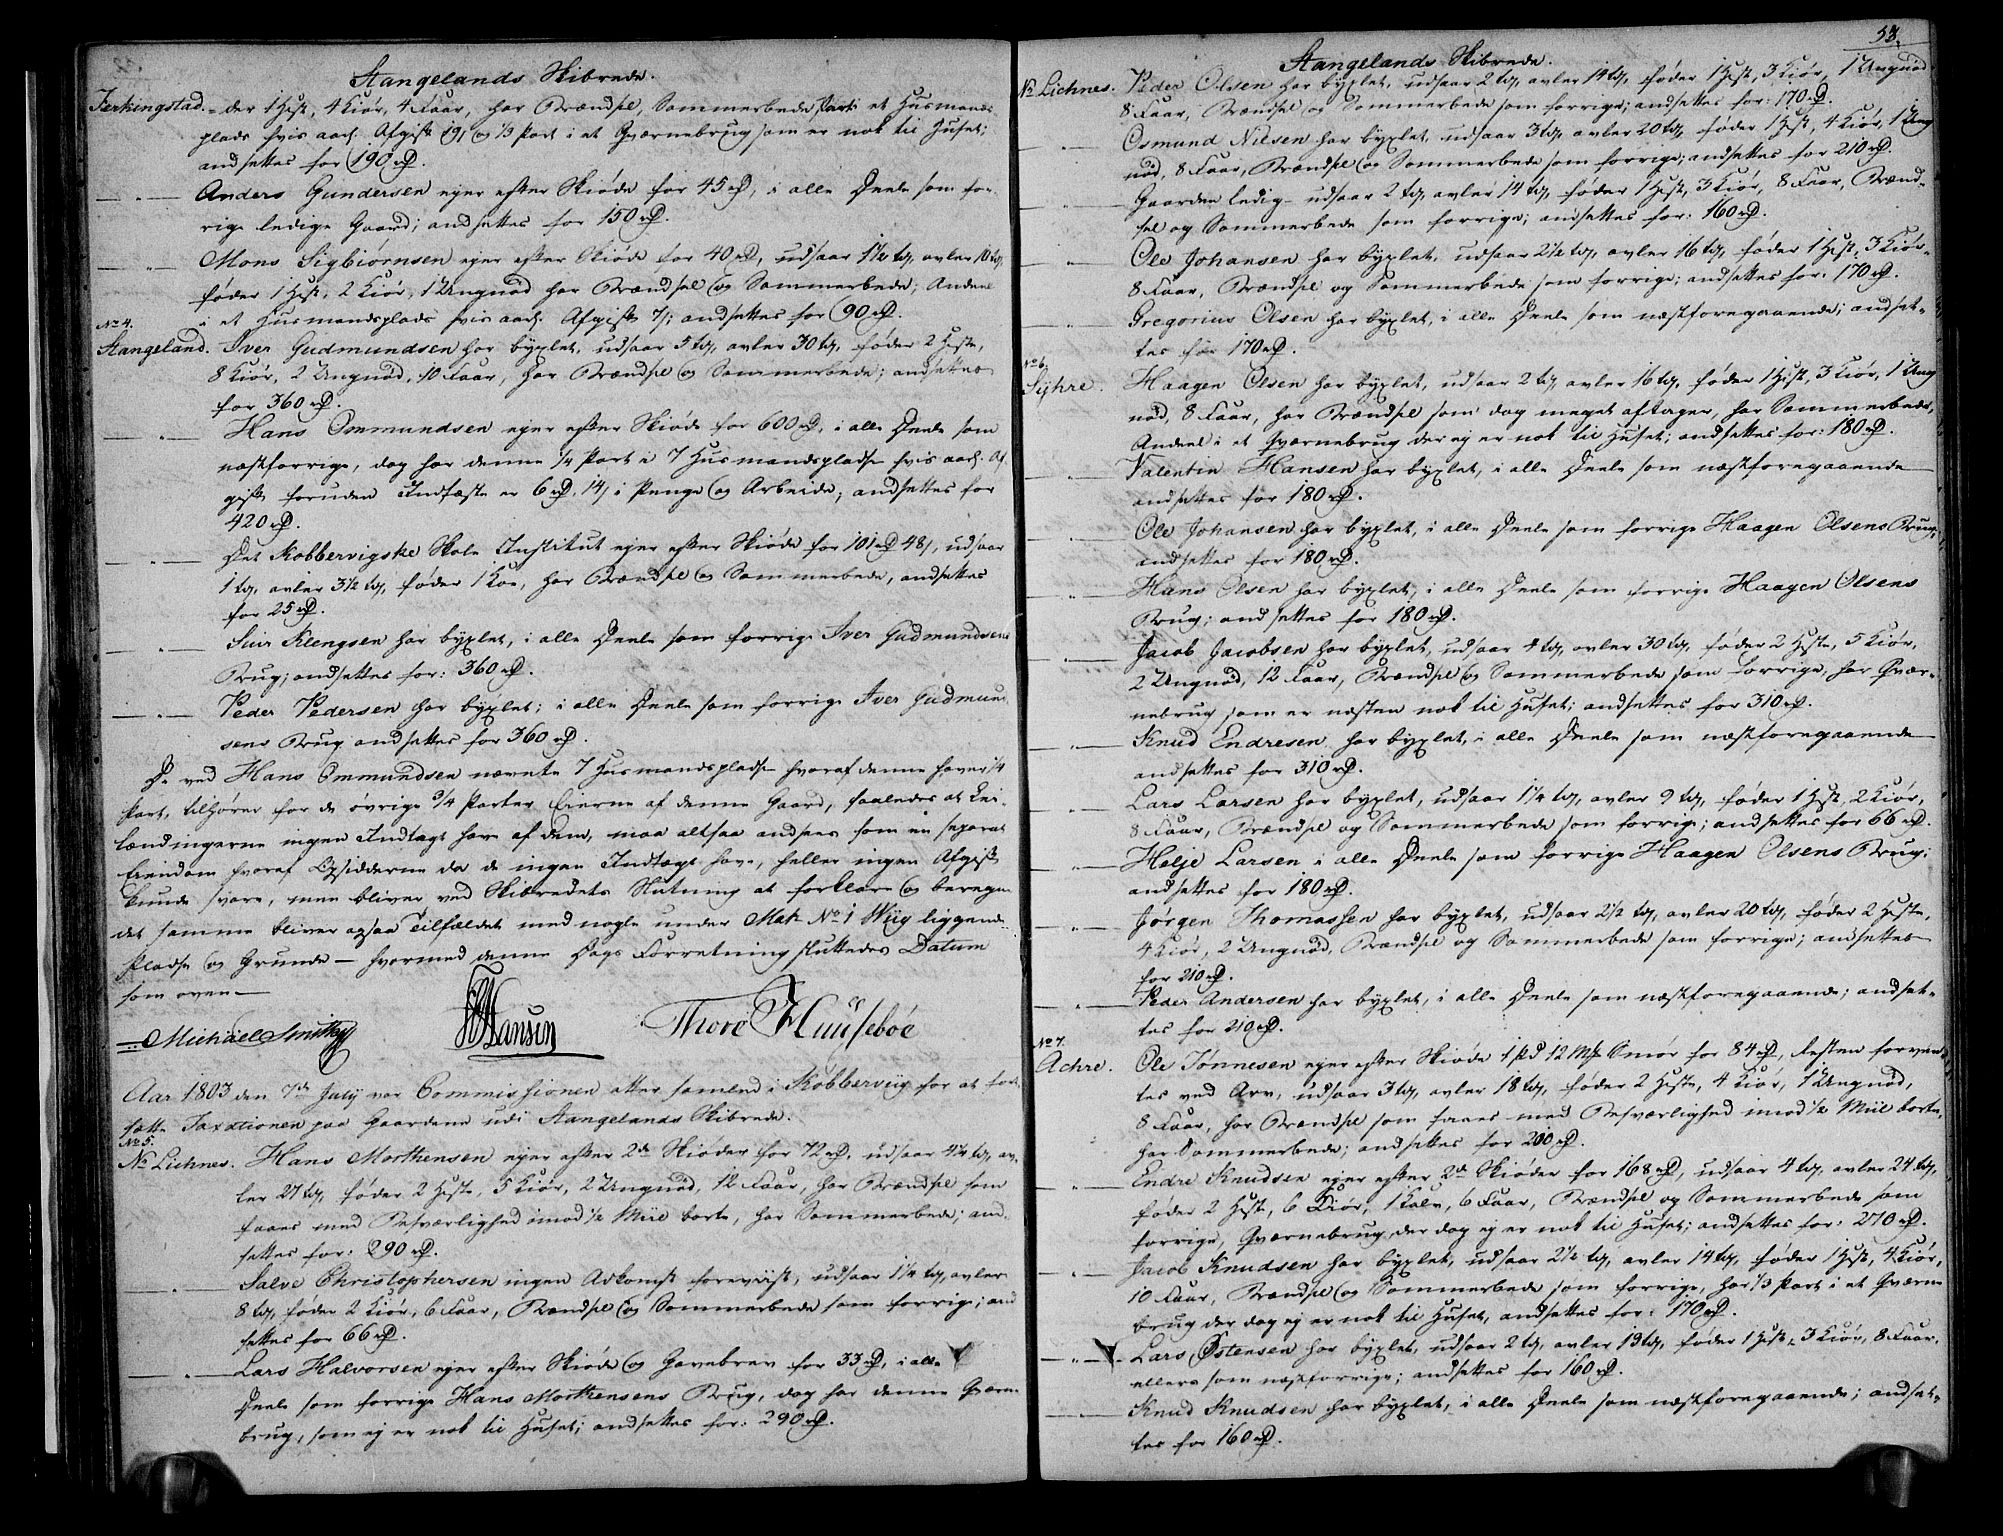 Stangelands Skibrede.
Ferkingstad. der 1 Hest, 4 Kiør, 4 Faar, har Brændsel, Sommerbede, Part i et Husmands-
plads hvis aarl. Afgift 19 s og 1/3 Part i et Qværnebrug som er nok til Huset;
andsettes for 190 rd.
— " — Anders Gundersen ejer efter Skiøde for 45 rd, i alle Deele som for-
rige ledige Gaard; andsettes for 150 rd.
— " — Mons Sigbiørnsen ejer efter Skiøde for 40 rd, udsaar 1 1/2 td, avler 10 td,
føder 1 Hest, 2 Kiør, 1 Ungnød har Brændsel og Sommerbede; Andeel
i et Husmandsplads hvis aarl. Afgift 7 s; andsettes for 90 rd.
No 4.
Stangeland. Iver Gudmundsen har byxlet, udsaar 5 td, avler 30 td, føder 2 Heste,
8 Kiør, 2 Ungnød, 10 Faar, har Brændsel og Sommerbede; andsettes
for 360 rd.
— " — Hans Ommundsen ejer efter Skiøde for 600 rd, i alle Deele som
næstforrige, dog har denne 1/4 Part i 7 Husmandspladse hvis aarl. Af-
gift foruden Indfæste er 6 rd, 14 s i Penge og Arbeide; andsettes for
420 rd.
— " — Det Kobbervigske Skole Institut ejer efter Skiøde for 101 rd 48 s, udsaar
1 td, avler 3 1/2 td, føder 1 Koe, har Brændsel og Sommerbede, andsettes
for 25 rd.
— " — Siur Klengsen har byxlet, i alle Deele som forrige Iver Gudmundsens
Brug; andsettes for: 360 rd.
— " — Peder Pedersen har byxlet; i alle Deele som forrige Iver Gudmund-
sens Brug andsettes for 360 rd.
De ved Hans Ommundsen nævnte 7 Husmandspladse hvoraf denne haver 1/4
Part, tilhører for de øvrige 3/4 Parter Eierne af denne Gaard, saaledes at Lei-
lændingerne ingen Indtægt have af dem, maa altsaa andsees som en separat
Eiendom hvoraf Opsidderne da de ingen Indtægt have, heller ingen Afgift
kunde svare, men bliver ved Skibredets Slutning at forklare og beregne
det samme bliver ogsaa Tilfældet med nogle under Mat: No 1 Wiig liggende
Pladse og Grunde — hvormed denne Dags Forretning sluttedes Datum
som oven —
Michael Smith Hansen Thore Huusebøe
Aar 1803 den 7de July var Commissionen atter samlet i Kobberviig for at fort-
sætte Taxationen paa Gaardene udi Stangelands Skibrede.
No 5.
No Lichnes. Hans Morthensen ejer efter 2de Skiøder for 72 rd, udsaar 4 1/4 td, av-
ler 27 td, føder 2 Heste, 5 Kiør, 2 Ungnød, 12 Faar, har Brændsel som
faaes med Besværlighed imod 1/2 Miil borte, har Sommerbede; and-
settes for: 290 rd.
— " — Salve Christophersen ingen Adkomst foreviist, udsaar 1 1/4 td, avler
8 td, føder 2 Kiør, 6 Faar, Brændsel og Sommerbede som forrige; and
settes for 66 rd.
— " — Lars Halvorsen ejer efter Skiøde og Gavebrev for 33 rd, i alle
Deele som forrige Hans Morthensens Brug, dog har denne Qværn-
brug, som ej er nok til Huset; andsettes for: 290 rd.
53.
Stangelands Skibrede.
No Lichnes. Peder Olsen har byxlet, udsaar 2 td, avler 14 td, føder 1 Hest, 3 Kiør, 1 Ungnød
8 Faar, Brændsel og Sommerbede som forrige; andsettes for: 170 rd.
— " — Osmund Nilsen har byxlet, udsaar 3 td, avler 20 td, føder 1 Hest, 4 Kiør, 1 Ung
nød, 8 Faar, Brændsel og Sommerbede som forrige; andsettes for 210 rd.
— " — Gaarden ledig – udsaar 2 td, avler 14 td, føder 1 Hest, 3 Kiør, 8 Faar, Brænd-
sel og Sommerbede som forrige; andsettes for: 160 rd.
— " — Ole Johansen har byxlet, udsaar 2 1/2 td, avler 16 td, føder 1 Hest, 3 Kiør,
8 Faar, Brændsel og Sommerbede som forrige; andsettes for: 170 rd.
— " — Gregorius Olsen har byxlet, i alle Deele som næstforegaaende; andset-
tes for 170 rd.
No 6.
Syhre. Haagen Olsen har byxlet, udsaar 2 td, avler 16 td, føder 1 Hest, 3 Kiør, 1 Ung
nød, 8 Faar, har Brændsel som dog meget aftager, har Sommerbede,
Andeel i et Qværnebrug der ej er nok til Huset; andsettes for: 180 rd.
— " — Valentin Hansen har byxlet, i alle Deele som næstforegaaende
andsettes for 180 rd.
— " — Ole Johansen har byxlet, i alle Deele som forrige Haagen Olsens Brug;
andsettes for 180 rd.
— " — Hans Olsen har byxlet, i alle Deele som forrige Haagen Olsens
Brug; andsettes for 180 rd.
— " — Jacob Jacobsen har byxlet, udsaar 4 td, avler 30 td, føder 2 Heste, 5 Kiør,
2 Ungnød, 12 Faar, Brændsel og Sommerbede som forrige, har Qvær-
nebrug som er næsten nok til Huset; andsettes for 310 rd.
— " — Knud Endresen har byxlet, i alle Deele som næstforegaaende
andsettes for 310 rd.
— " — Lars Larsen har byxlet, udsaar 1 1/4 td, avler 9 td, føder 1 Hest, 2 Kiør,
8 Faar, Brændsel og Sommerbede som forrige; andsettes for 66 rd.
— " — Helje Larsen i alle Deele som forrige Haagen Olsens Brug;
andsettes for 180 rd.
— " — Jørgen Thomassen har byxlet, udsaar 2 1/2 td, avler 20 td, føder 2 Heste,
4 Kiør, 2 Ungnød, Brændsel og Sommerbede som forrige; andsettes
for 210 rd.
— " — Peder Andersen har byxlet, i alle Deele som næstforegaaende; andset-
tes for 210 rd.
No 7.
Achre. Ole Tønnesen ejer efter Skiøde 1 pd 12 Mrk Smør for 84 rd, Resten forven-
tes ved Arv, udsaar 3 td, avler 18 td, føder 2 Heste, 4 Kiør, 1 Ungnød,
8 Faar, har Brændsel som faaes med Besværlighed imod 1/2 Miil borte,
har Sommerbede; andsettes for 200 rd.
— " — Endre Knudsen ejer efter 2de Skiøder for 168 rd, udsaar 4 td, avler 24 td,
føder 2 Heste, 6 Kiør, 1 Kalv, 6 Faar, Brændsel og Sommerbede som
forrige, Qværnebrug, der dog ej er nok til Huset; andsettes for: 270 rd.
— " — Jacob Knudsen har byxlet, udsaar 2 1/2 td, avler 14 td, føder 1 Hest, 4 Kiør,
10 Faar, Brændsel og Sommerbede som forrige, har 1/3 Part i et Qværne
brug der dog ej er nok til Huset, andsettes for: 170 rd.
— " — Lars Østensen har byxlet, udsaar 2 td, avler 13 td, føder 1 Hest, 3 Kiør, 8 Faar,
ellers som næstforrige; andsettes for 160 rd.
— " — Knud Knudsen har byxlet, i alle Deele som næstforegaaende; andset-
tes for 160 rd.